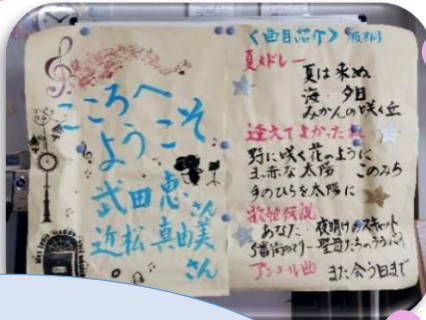 こころへ
ようこそ
武田恵さん
近松真由美
さん
＜曲目紹介＞
夏メドレー
夏は来ぬ
海・夕日
みかんの咲く丘
逢えてよかったね
野に咲く花のように
真赤な太陽 このみち
手のひらを太陽に
歌姫伝説
あなた・夜明けのスキャット
5番街のマリー・聖母たちのララバイ
アンコール曲 また会う日まで